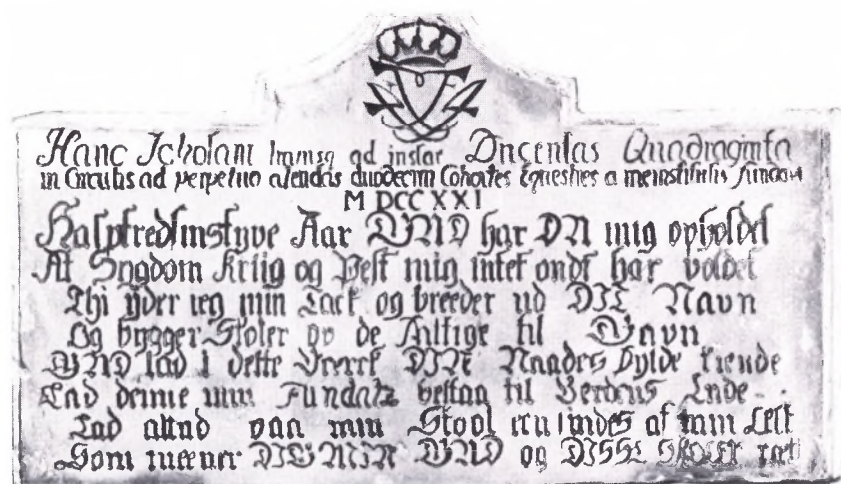 Hanc Scholam ad instar Ducentas Quadraginta
in Circulis ad perpetuo alendas duodecim Cohortes Equestres a me institutis fundavi
M DCC XXI
Halftredsinstyve Aar GUD har DU mig opholdet
At Sygdom Kriig og Pest mig intet ondt har voldet
Thi yder ieg min Tack og breeder ud DIT Navn
Og bygger Skoler op de Fattige til Gavn
GUD lad i dette Værck DIN Naades Fylde kiende
Lad denne min Fundatz bestaa til Verdens Ende
Lad altid paa min Stool een findes af min Ætt
Som meener DIG MIN GUD og DISSE SKOLER ræt